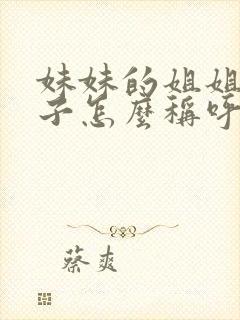 妹妹的姐姐
子怎麼稱呼
蔡爽